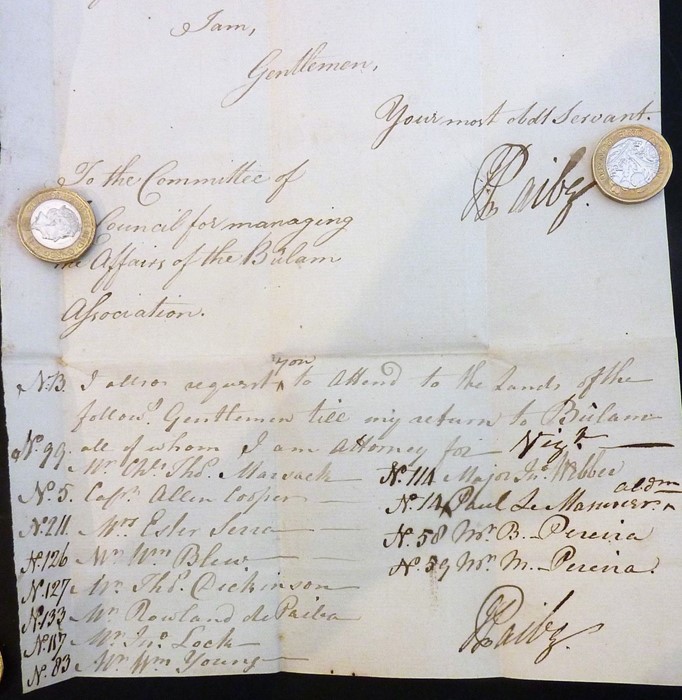 I am,
Gentlemen,
Your most obdt Servant.
To the Committee of
Council for managing
the Affairs of the Bulam
Association.
N.B. I allso request ^you to Attend to the Lands of the
followg. Gentlemen till my return to Bulam
all of whom I am Attorney for Vizt
No. 99. Mr. Chs. Thos. Marsack
No. 5. Capn. Allen Cooper
No. 211 Mrs Ester Serra
No. 126 Mr. Wm Blew
No. 127 Mr. Thos. Dickinson
No. 133 Mr. Rowland de Paiba
No. 117 Mr. Jno Lock
No. 83 Mr. Wm Young
No. 114 Major Jno. Webber
No. 14 Paul Le Mesurier ^aldm
No. 58 Mr. B. Pereira
No. 59 Mr. M. Pereira.